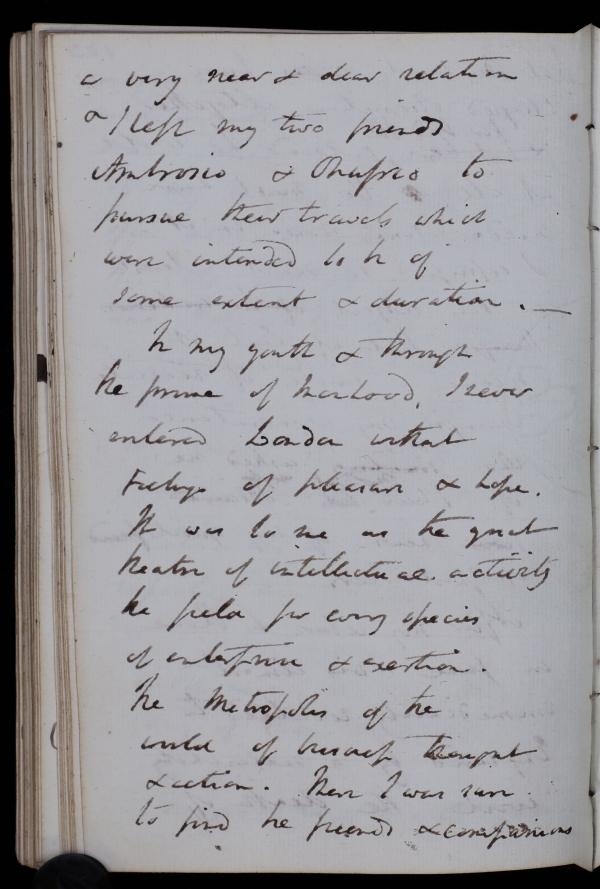 a very near & dear relation
& I left my two friends
Ambrosio & Onufrio to
pursue their travels which
were intended to be of
some extent & duration. —
In my youth & through
the prime of Manhood, I never
entered London without
Feelings of pleasure & hope.
It was to me as the great
theatre of intellectual activity
the field for every species
of enterprise & exertion.
The Metropolis of the
world of business thought
& action. There I was sure
to find the friends & companions